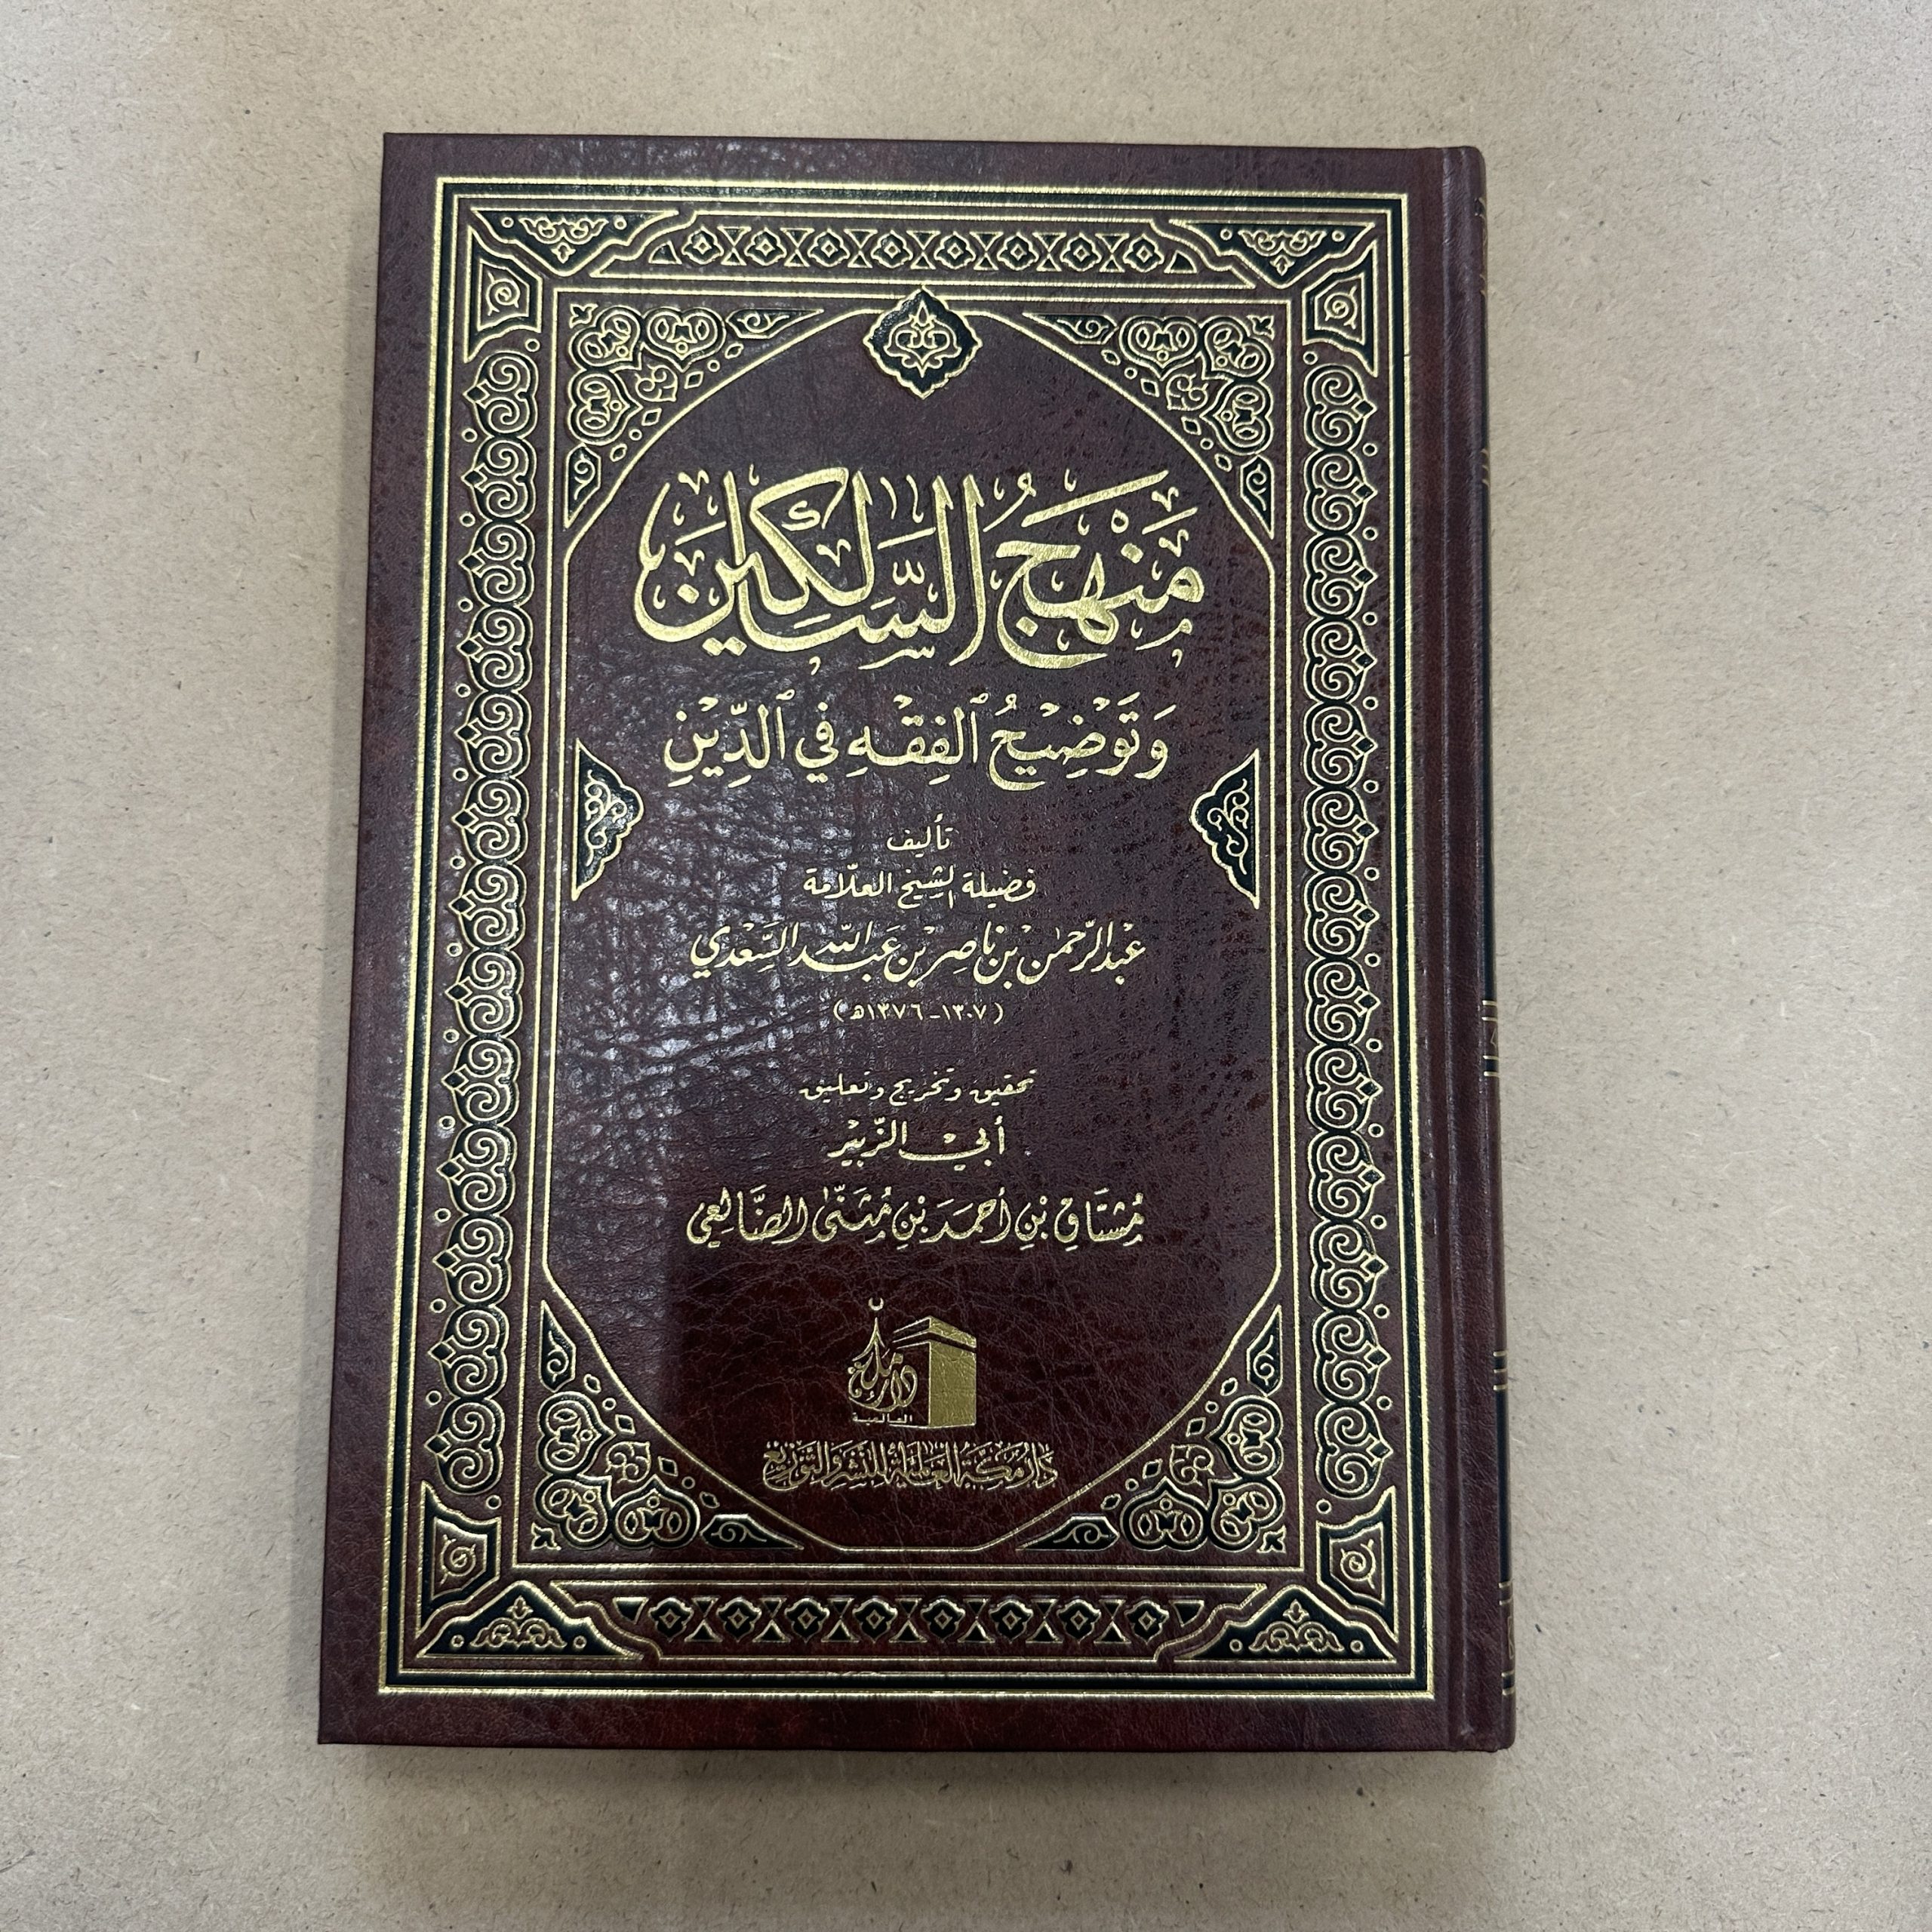 مَنْهَجُ السَّالِكِينَ
وَتَوْضِيحُ الفِقْهِ فِي الدِّيْنِ
تأليف
فضيلة الشيخ العلّامة
عبد الرّحمن بن ناصر بن عَبد الله السَّعْدي
(١٣٠٧ - ١٣٧٦هـ)
تحقيق وتخريج وتعليق
أبي الزّبير
مُشتَاق بْنِ أحمَد بْنِ مُثَنَّى الضَّالعي
دار مكة
العالمية
دَارُ مَكَّةَ العَالَميَّة للنَّشْر وَالتَّوْزيْع